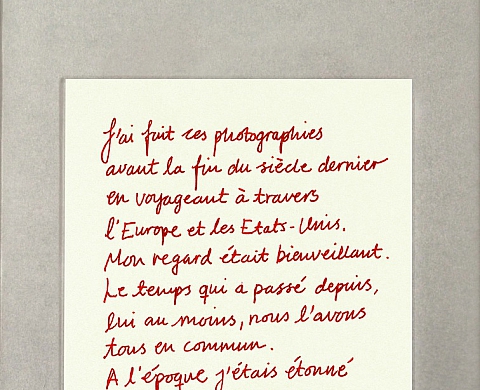 J'ai fait ces photographies
avant la fin du siècle dernier
en voyageant à travers
l'Europe et les Etats-Unis.
Mon regard était bienveillant.
Le temps qui a passé depuis,
lui au moins, nous l'avons
tous en commun.
A l'époque j'étais étonné